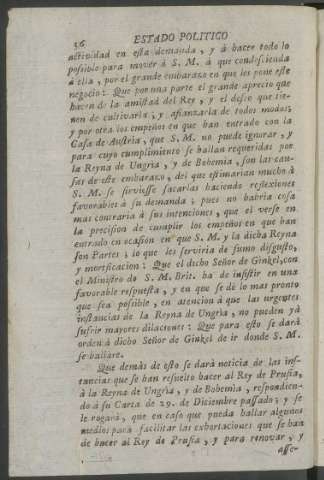 36 ESTADO POLITICO
actividad en esta demanda, y à hacer todo lo
possible para mover à S. M. à que condescienda
à ella, por el grande embarazo en que les pone este
negocio: Que por una parte el grande aprecio que
hacen de la amistad del Rey, y el deseo que tie-
nen de cultivarla, y afianzarla de todos modos;
y por otra los empeños en que han entrado con la
Casa de Austria, que S. M. no puede ignorar, y
para cuyo cumplimiento se hallan requeridas por
la Reyna de Ungria, y de Bohemia, son las cau-
sas de este embarazo, del que estimarian mucho à
S. M. se sirviesse sacarlas haciendo reflexiones
favorables à su demanda; pues no habria cosa
mas contraria à sus intenciones, que el verse en
la precision de cumplir los empeños en que han
entrado en ocasion en que S. M. y la dicha Reyna
son Partes; lo que les serviria de sumo disgusto,
y mortificacion: Que el dicho Señor de Ginkel, con
el Ministro de S. M. Brit. ha de insistir en una
favorable respuesta, y en que se dè lo mas pronto
que sea possible, en atencion à que las urgentes
instancias de la Reyna de Ungria, no pueden yà
sufrir mayores dilaciones: Que para esto se darà
orden à dicho Señor de Ginkel de ir donde S. M.
se hallare.
Que demàs de esto se darà noticia de las ins-
tancias que se han resuelto hacer al Rey de Prusia,
à la Reyna de Ungria, y de Bohemia, respondien-
do à su Carta de 29. de Diciembre passado; y se
le rogarà, que en caso que pueda hallar algunos
medios para facilitar las exhortaciones que se han
de hacer al Rey de Prusia, y para renovar, y
asse-